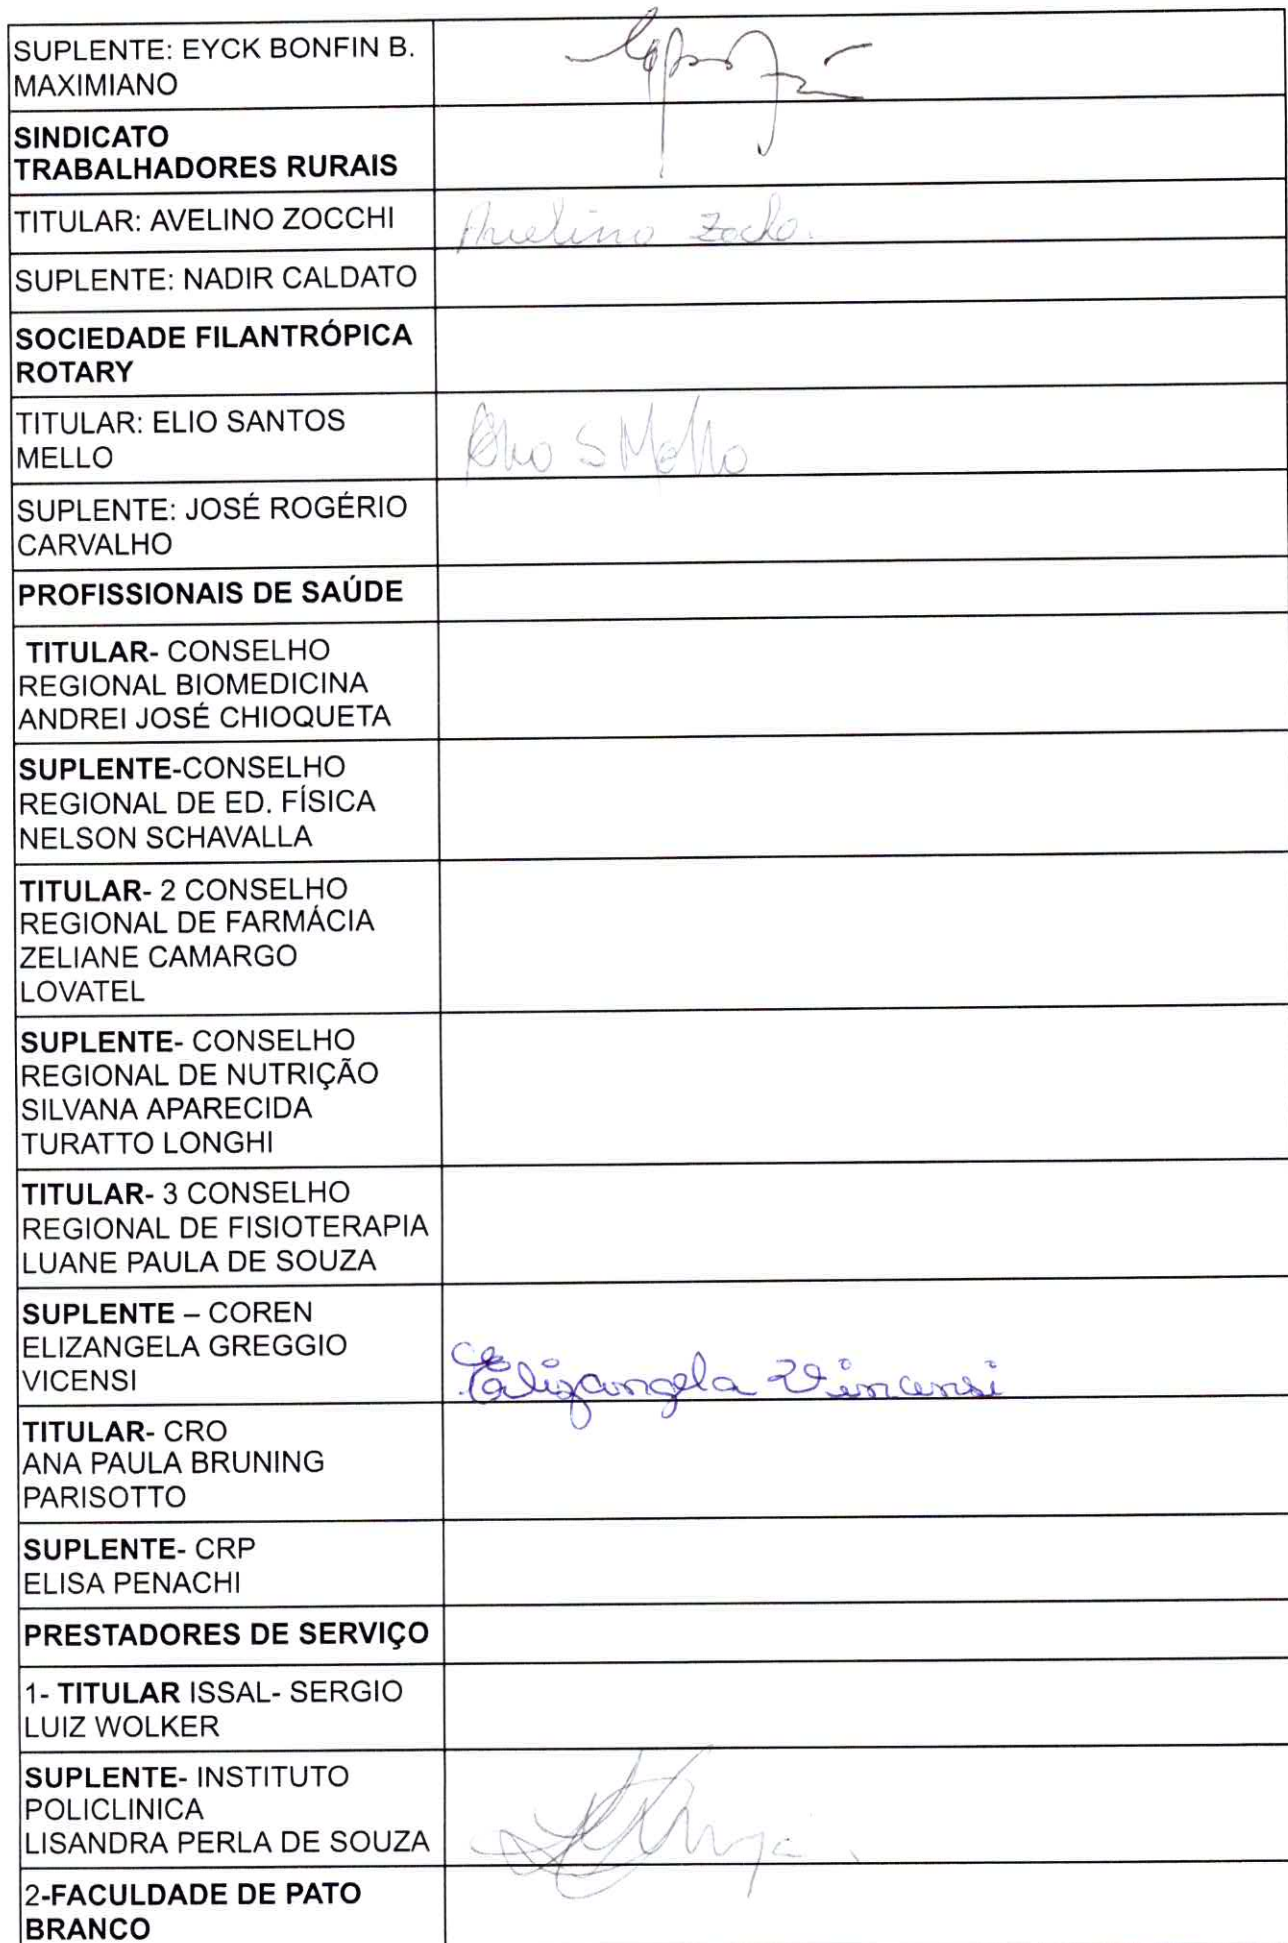 SUPLENTE: EYCK BONFIN B.
MAXIMIANO
SINDICATO
TRABALHADORES RURAIS
TITULAR: AVELINO ZOCCHI
Avelino Zocchi
SUPLENTE: NADIR CALDATO
SOCIEDADE FILANTRÓPICA
ROTARY
TITULAR: ELIO SANTOS
MELLO
Elio S Mello
SUPLENTE: JOSÉ ROGÉRIO
CARVALHO
PROFISSIONAIS DE SAÚDE
TITULAR- CONSELHO
REGIONAL BIOMEDICINA
ANDREI JOSÉ CHIOQUETA
SUPLENTE-CONSELHO
REGIONAL DE ED. FÍSICA
NELSON SCHAVALLA
TITULAR- 2 CONSELHO
REGIONAL DE FARMÁCIA
ZELIANE CAMARGO
LOVATEL
SUPLENTE- CONSELHO
REGIONAL DE NUTRIÇÃO
SILVANA APARECIDA
TURATTO LONGHI
TITULAR- 3 CONSELHO
REGIONAL DE FISIOTERAPIA
LUANE PAULA DE SOUZA
SUPLENTE – COREN
ELIZANGELA GREGGIO
VICENSI
Elizangela Vincensi
TITULAR- CRO
ANA PAULA BRUNING
PARISOTTO
SUPLENTE- CRP
ELISA PENACHI
PRESTADORES DE SERVIÇO
1- TITULAR ISSAL- SERGIO
LUIZ WOLKER
SUPLENTE- INSTITUTO
POLICLINICA
LISANDRA PERLA DE SOUZA
2-FACULDADE DE PATO
BRANCO